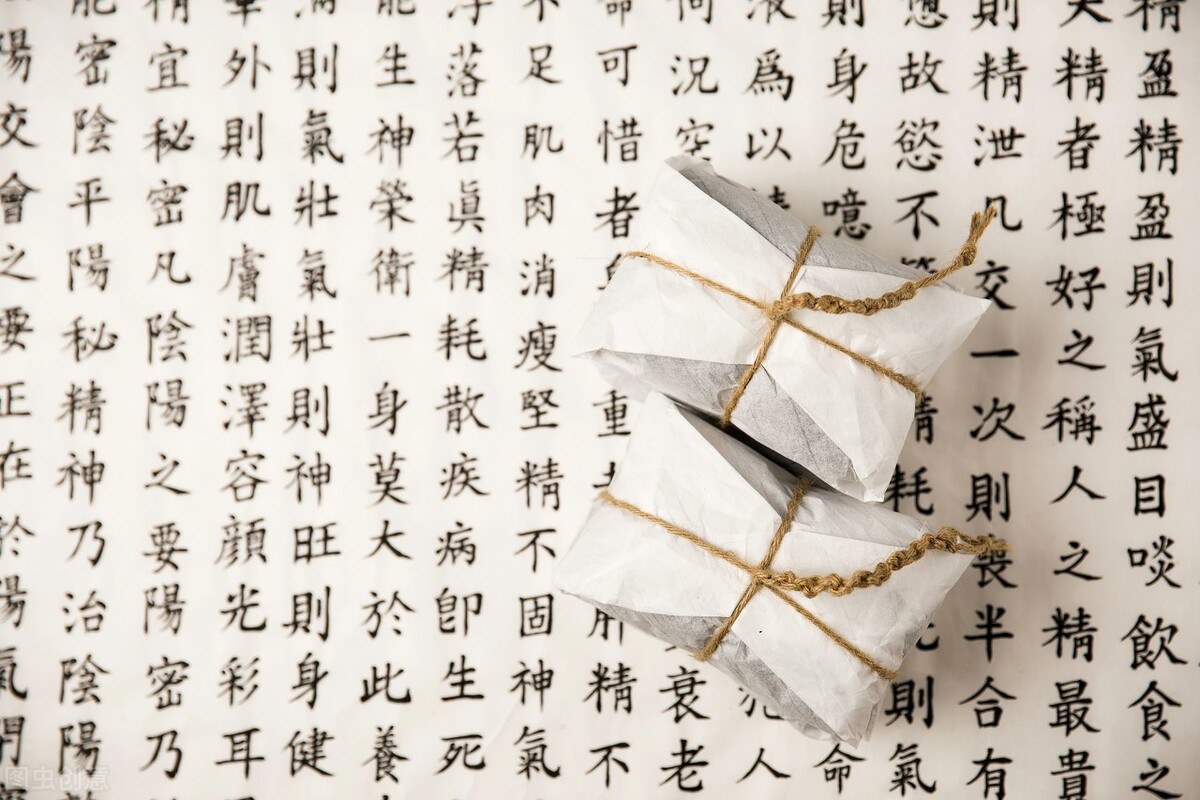 精盈精盈則氣盛目啖飲食之
精者極好之稱人之精最貴
則精泄凡交一次則喪半合有
故慾不 精耗 則氣
則身危噫 命
液爲以 人
何況 衰老
命可惜者 重 肝精不
不足肌肉消瘦堅精不固神氣
浮落若眞精耗散疾病卽生死
能生神榮衛一身莫大於此養
滿則氣壯氣壯則神旺則身健
外則肌膚潤澤容顏光彩耳
精宜秘密凡陰陽之要陽密乃
能密陰平陽秘精神乃治陰陽
陽交會之要正在於陽氣
图虫创意